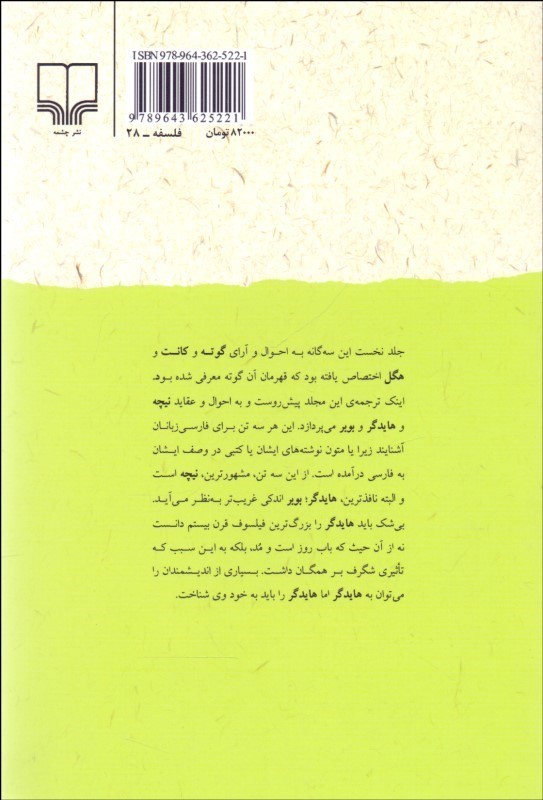 ISBN 978-964-362-522-1
9 789643 625221
فلسفه ــ ۲۸
۸۲۰۰۰ تومان
نشر چشمه
جلد نخست این سه‌گانه به احوال و آرای گوته و کانت و
هگل اختصاص یافته بود که قهرمان آن گوته معرفی شده بود.
اینک ترجمه‌ی این مجلد پیش‌روست و به احوال و عقاید نیچه
و هایدگر و بوبر می‌پردازد. این هر سه تن برای فارسی‌زبانان
آشنایند زیرا یا متون نوشته‌های ایشان یا کتبی در وصف ایشان
به فارسی درآمده است. از این سه تن، مشهورترین، نیچه است
و البته نافذترین، هایدگر؛ بوبر اندکی غریب‌تر به‌نظر می‌آید.
بی‌شک باید هایدگر را بزرگ‌ترین فیلسوف قرن بیستم دانست
نه از آن حیث که باب روز است و مُد، بلکه به این سبب که
تأثیری شگرف بر همگان داشت. بسیاری از اندیشمندان را
می‌توان به هایدگر اما هایدگر را باید به خود وی شناخت.